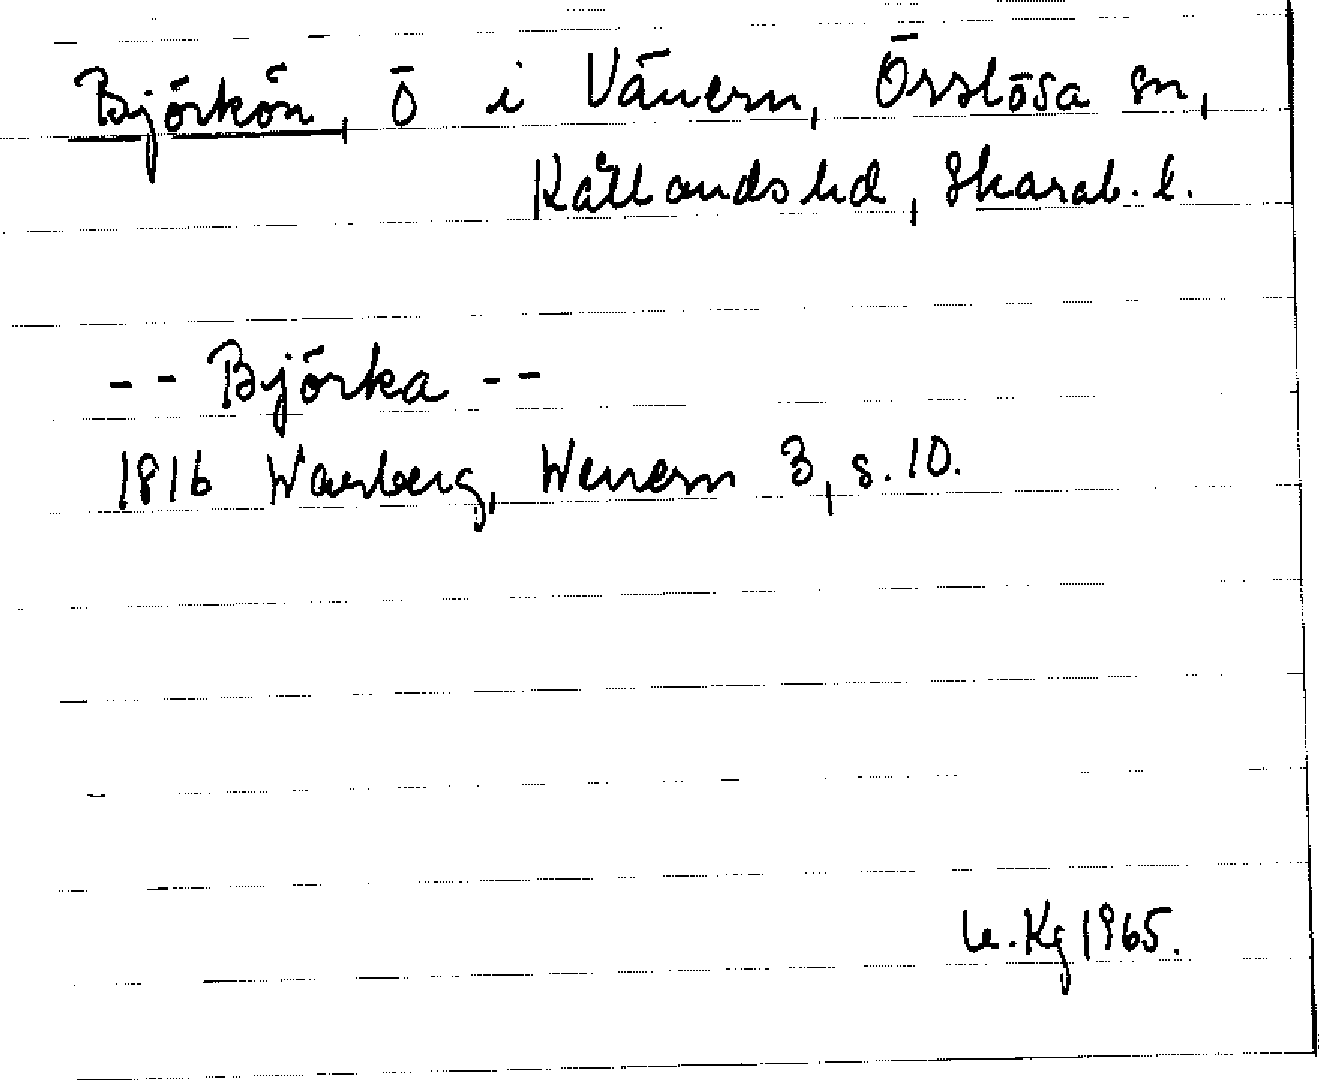 Björkön, ö i Vänern, Örslösa sn,
Kållandshd, Skarab. l.
-- Björka --
1816 Warberg, Wenern 3, s. 10.
Kg 1965.